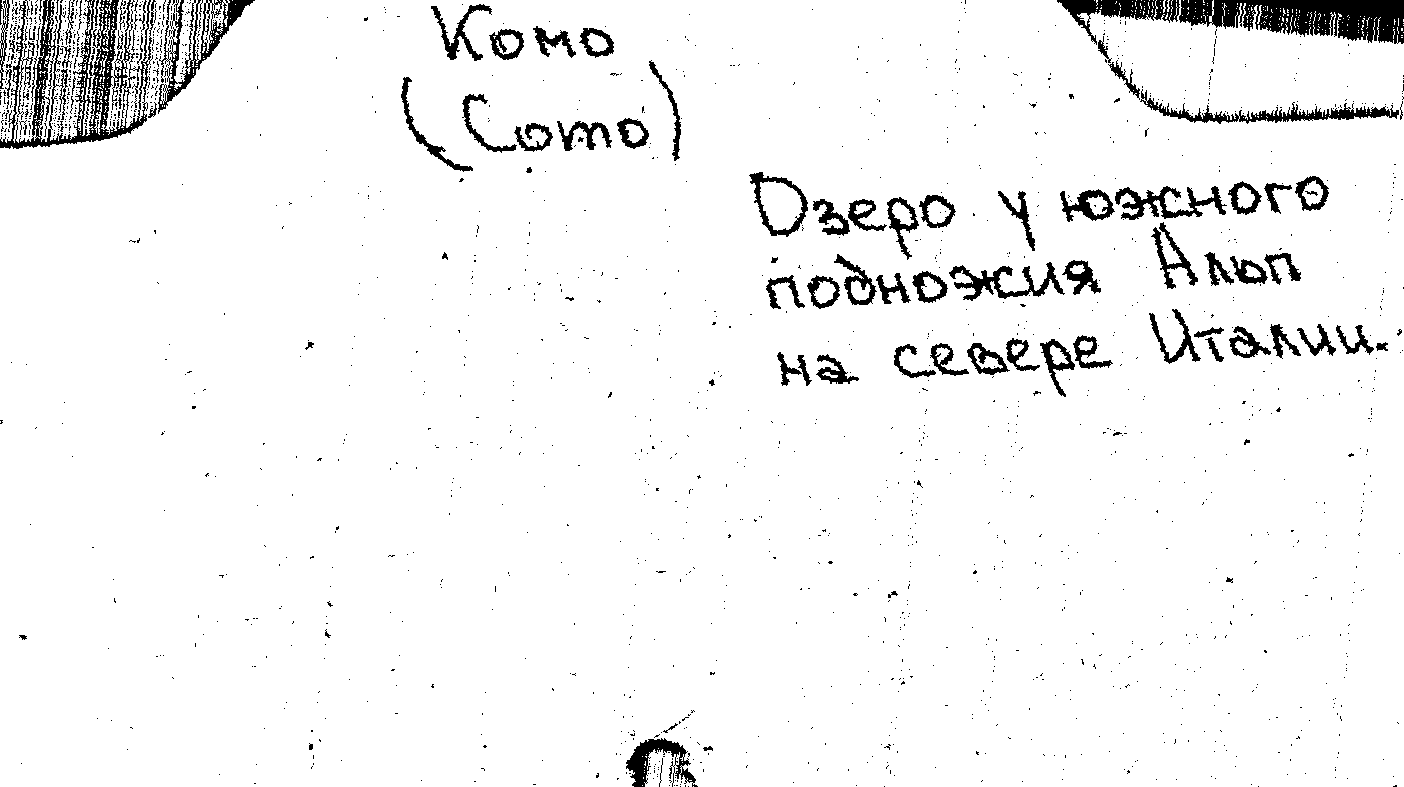 Комо
(Como)
Озеро у южного
подножия Альп
на севере Италии.